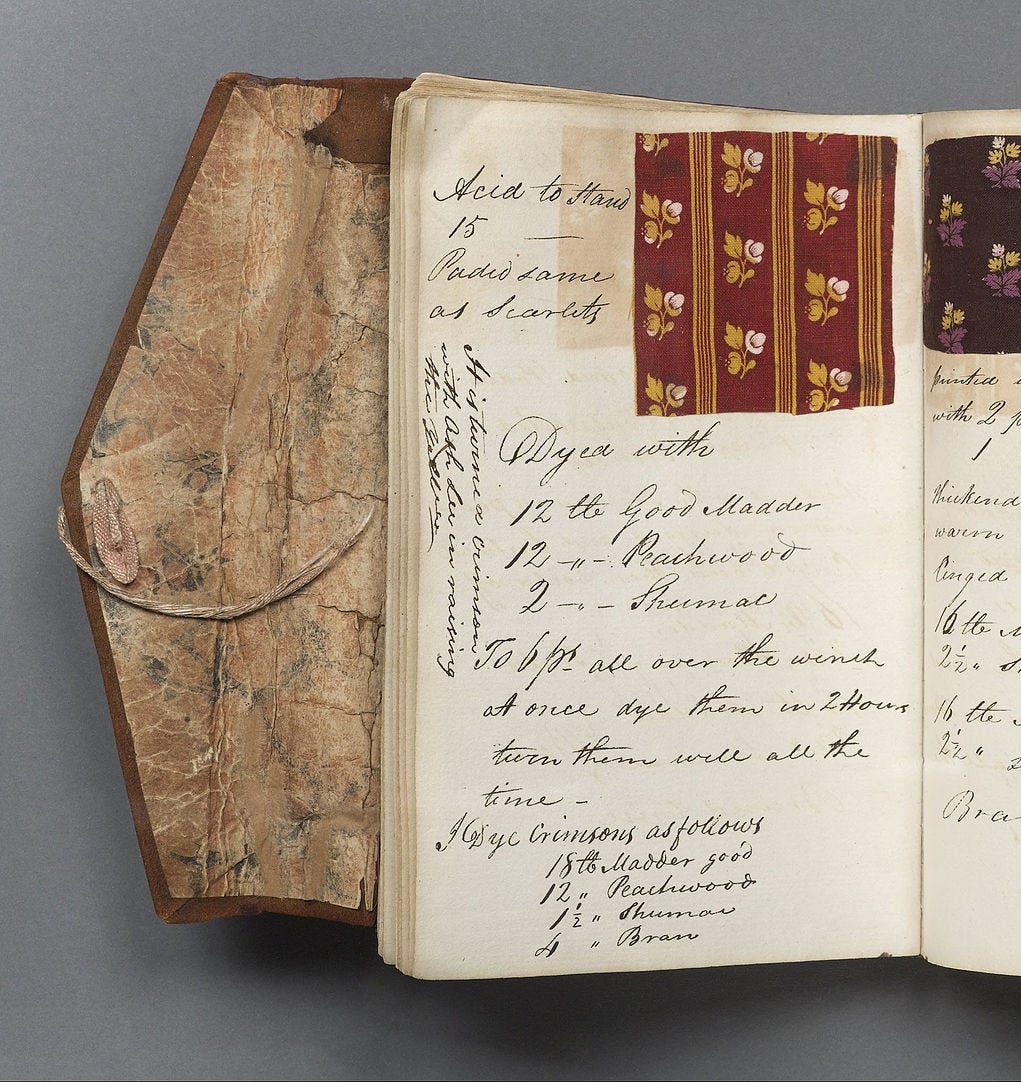 Acid to stand
15 —
Padid same
as Scarlets
It is turned crimson
with Ash Lee in raising
the
Dyed with
12 ℔ Good Madder
12 -〃- Peachwood
2 -〃- Shumac
To 6 ps all over the winch
at once dye them in 2 Hours
turn them well all the
time -
I Dye Crimsons as follows
18 ℔ Madder good
12 〃 Peachwood
1½ 〃 Shumac
4 〃 Bran
printed
with 2 p
1
thickend
warm
16 ℔ M
2½ 〃 S
16 ℔
2½ 〃
Bra